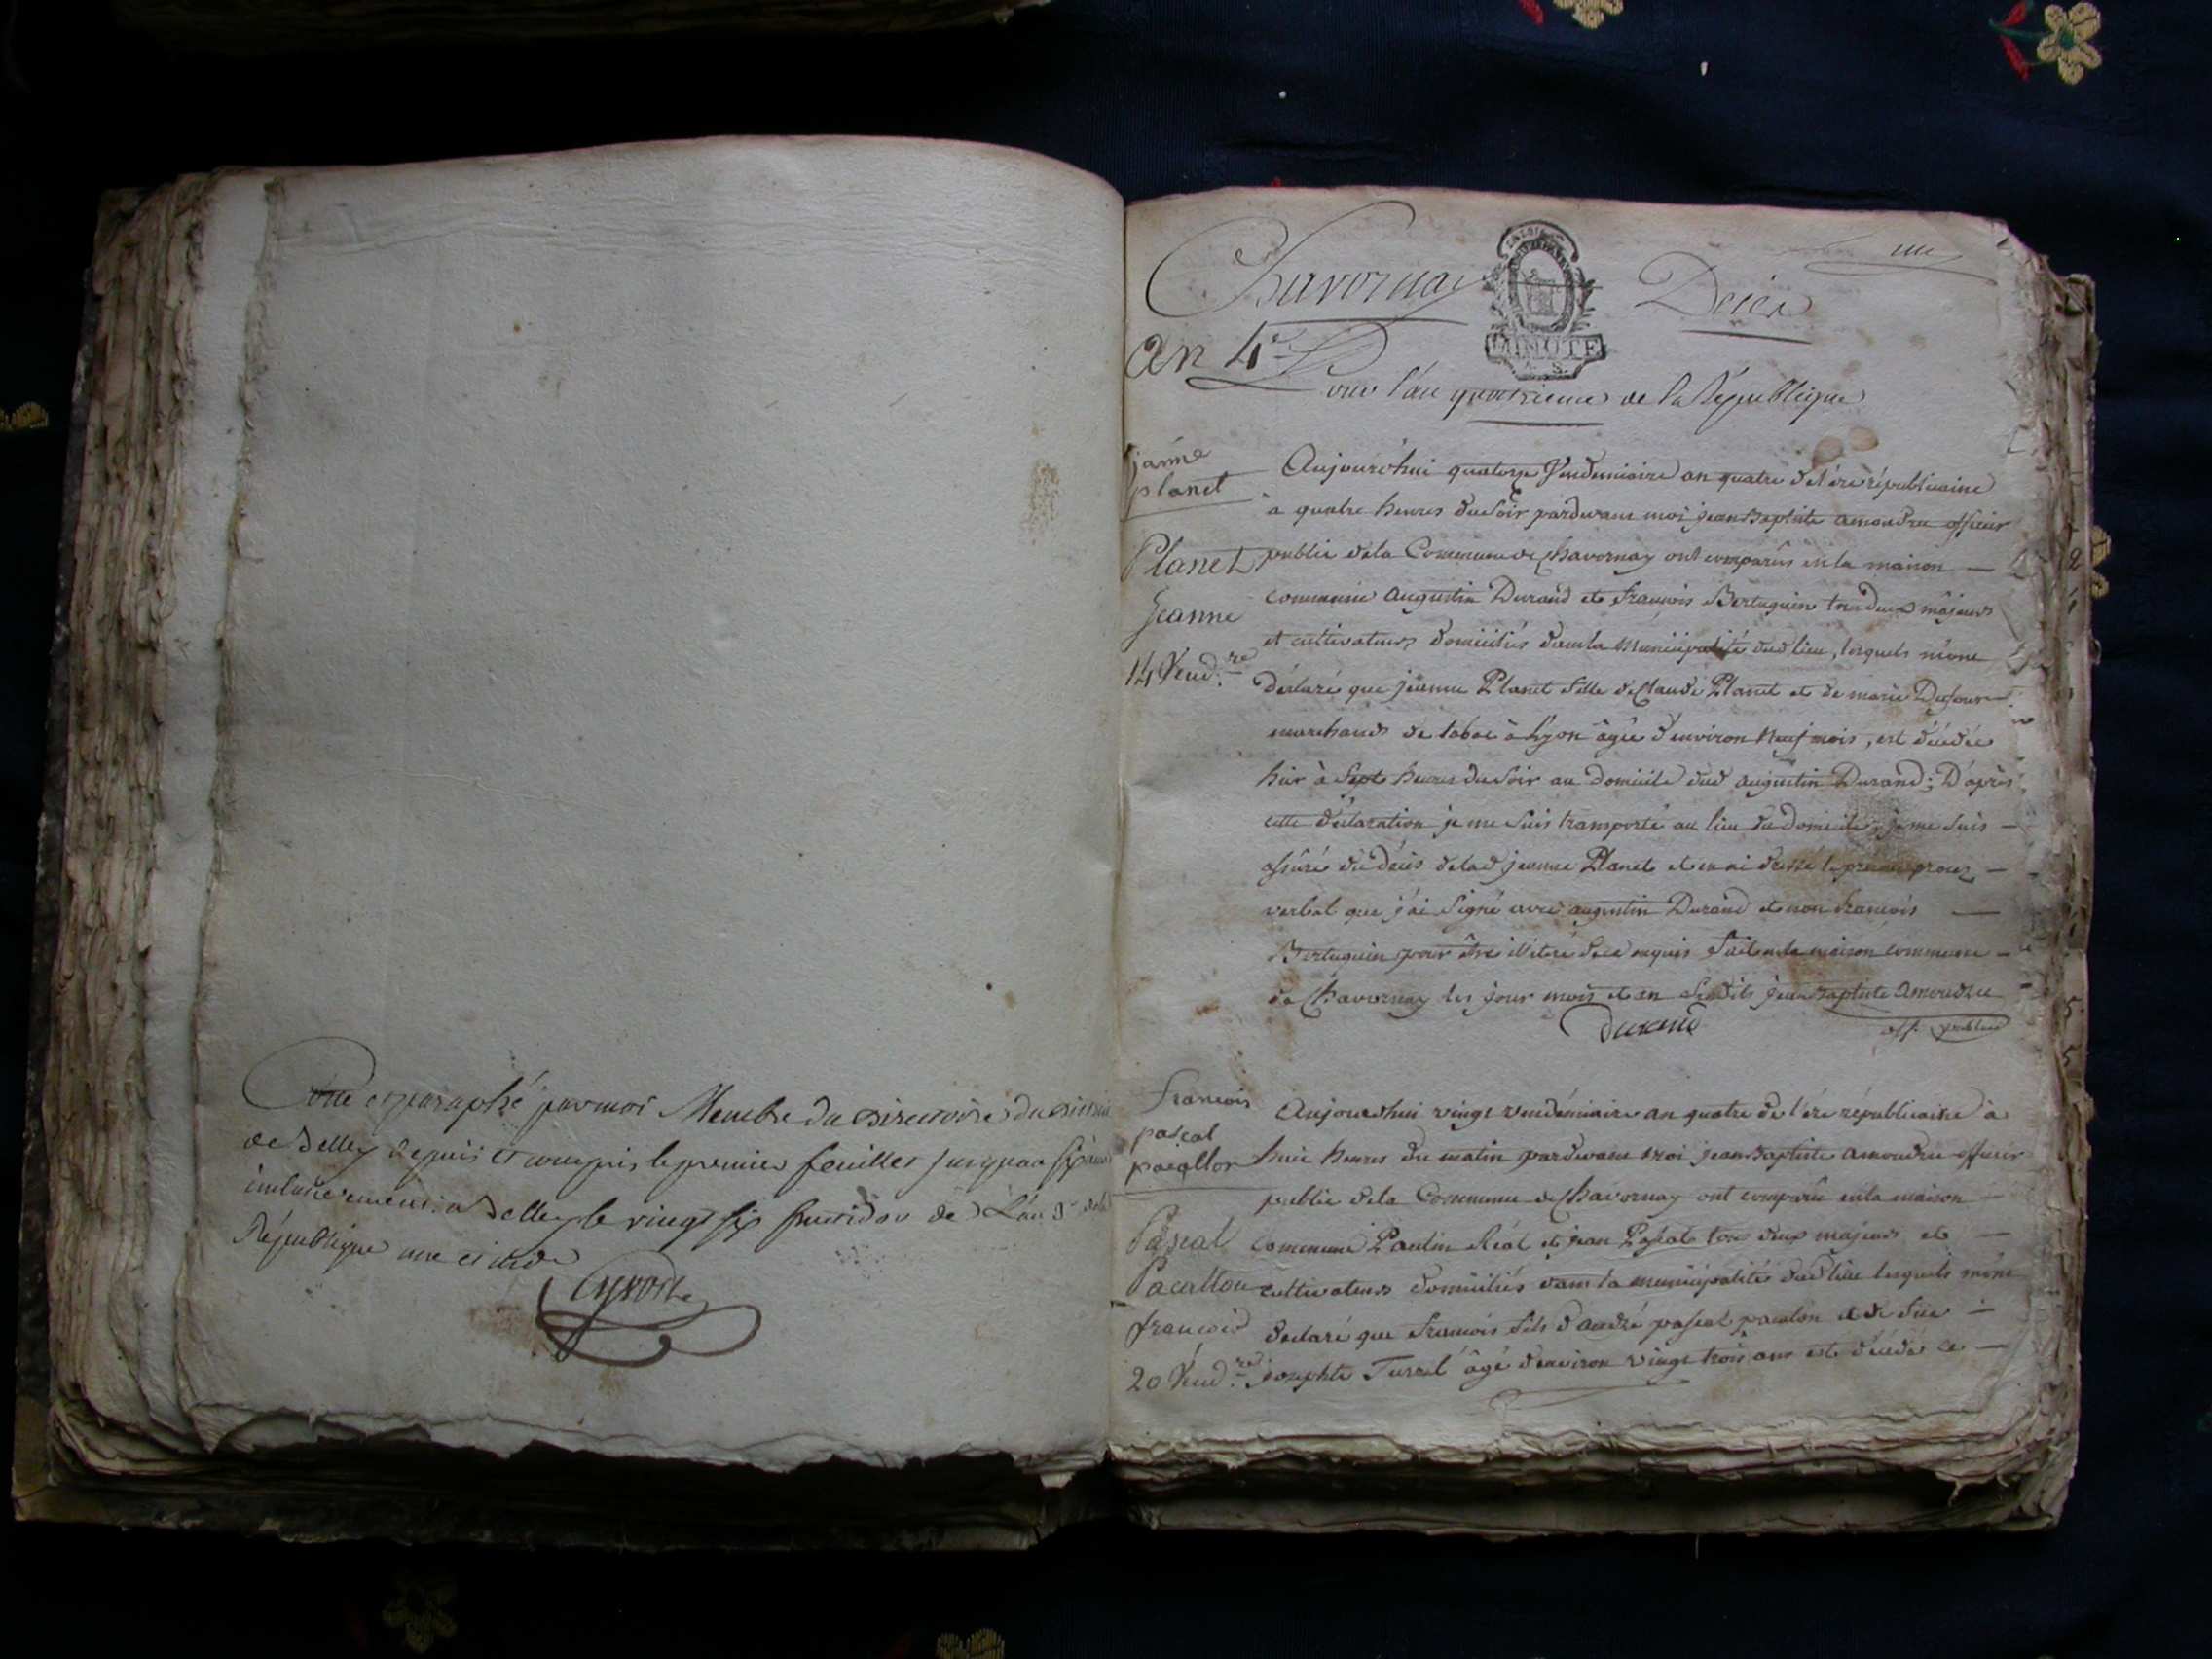 Cotté et paraphé par moi Membre du Directoire du District
de Belley depuis et compris le premier feuillet jusqu'au sixieme
inclusivement. a Belley le vingt six fructidor de L'an 3e de la
République une et indle
Chavornay
Décès
une
MINUTE
an 4e
Pour l'an quatrieme de la République
janne
planet
Planet
Jeanne
14 Vend.re
Aujourd'hui quatorze Vendemiaire an quatre de l'ére républicaine
à quatre heures du Soir pardevant moi jean Baptiste amoudru officier
public de la Commune de Chavornay ont comparûs en la maison
commune augustin Durand et françois Bertuguin tous deux majeurs
et cultivateurs domiciliés dans la Municipalité dud lieu, lesquels m'ont
déclaré que jeanne Planet fille de Claude Planet et de marie Dufour
marchands de tabac à Lyon âgée d'environ Neuf mois, est décédée
hier à Sept heures du Soir au domicile dud augustin Durand; D'après
cette déclaration je me suis transporté au lieu du domicile, je me suis
assuré du décès de lad jeanne Planet et en ai dressé le présent procez
verbal que j'ai signé avec augustin Durand et non françois
Bertuguin pour être illiteré de ce enquis fait en la maison commune
de Chavornay les jour mois et an susdits jean Baptiste Amoudru
Durand
off. public
francois
pascal
pacallon
Pascal
Pacallon
françois
20 Vend.re
Aujourdhui vingt vendémiaire an quatre de l'ére républicaine à
huit heures du matin pardevant moi jean Baptiste amoudru officier
public de la Commune de Chavornay ont comparû en la maison
commune Paulin Réal et jean Pascal tous deux majeurs et
cultivateurs domiciliés dans la municipalité dud lieu lesquels m'ont
declaré que francois fils d'andré pascal pacalon et de fue
josephte Turrel âgé d'environ vingt trois ans est décédé ce